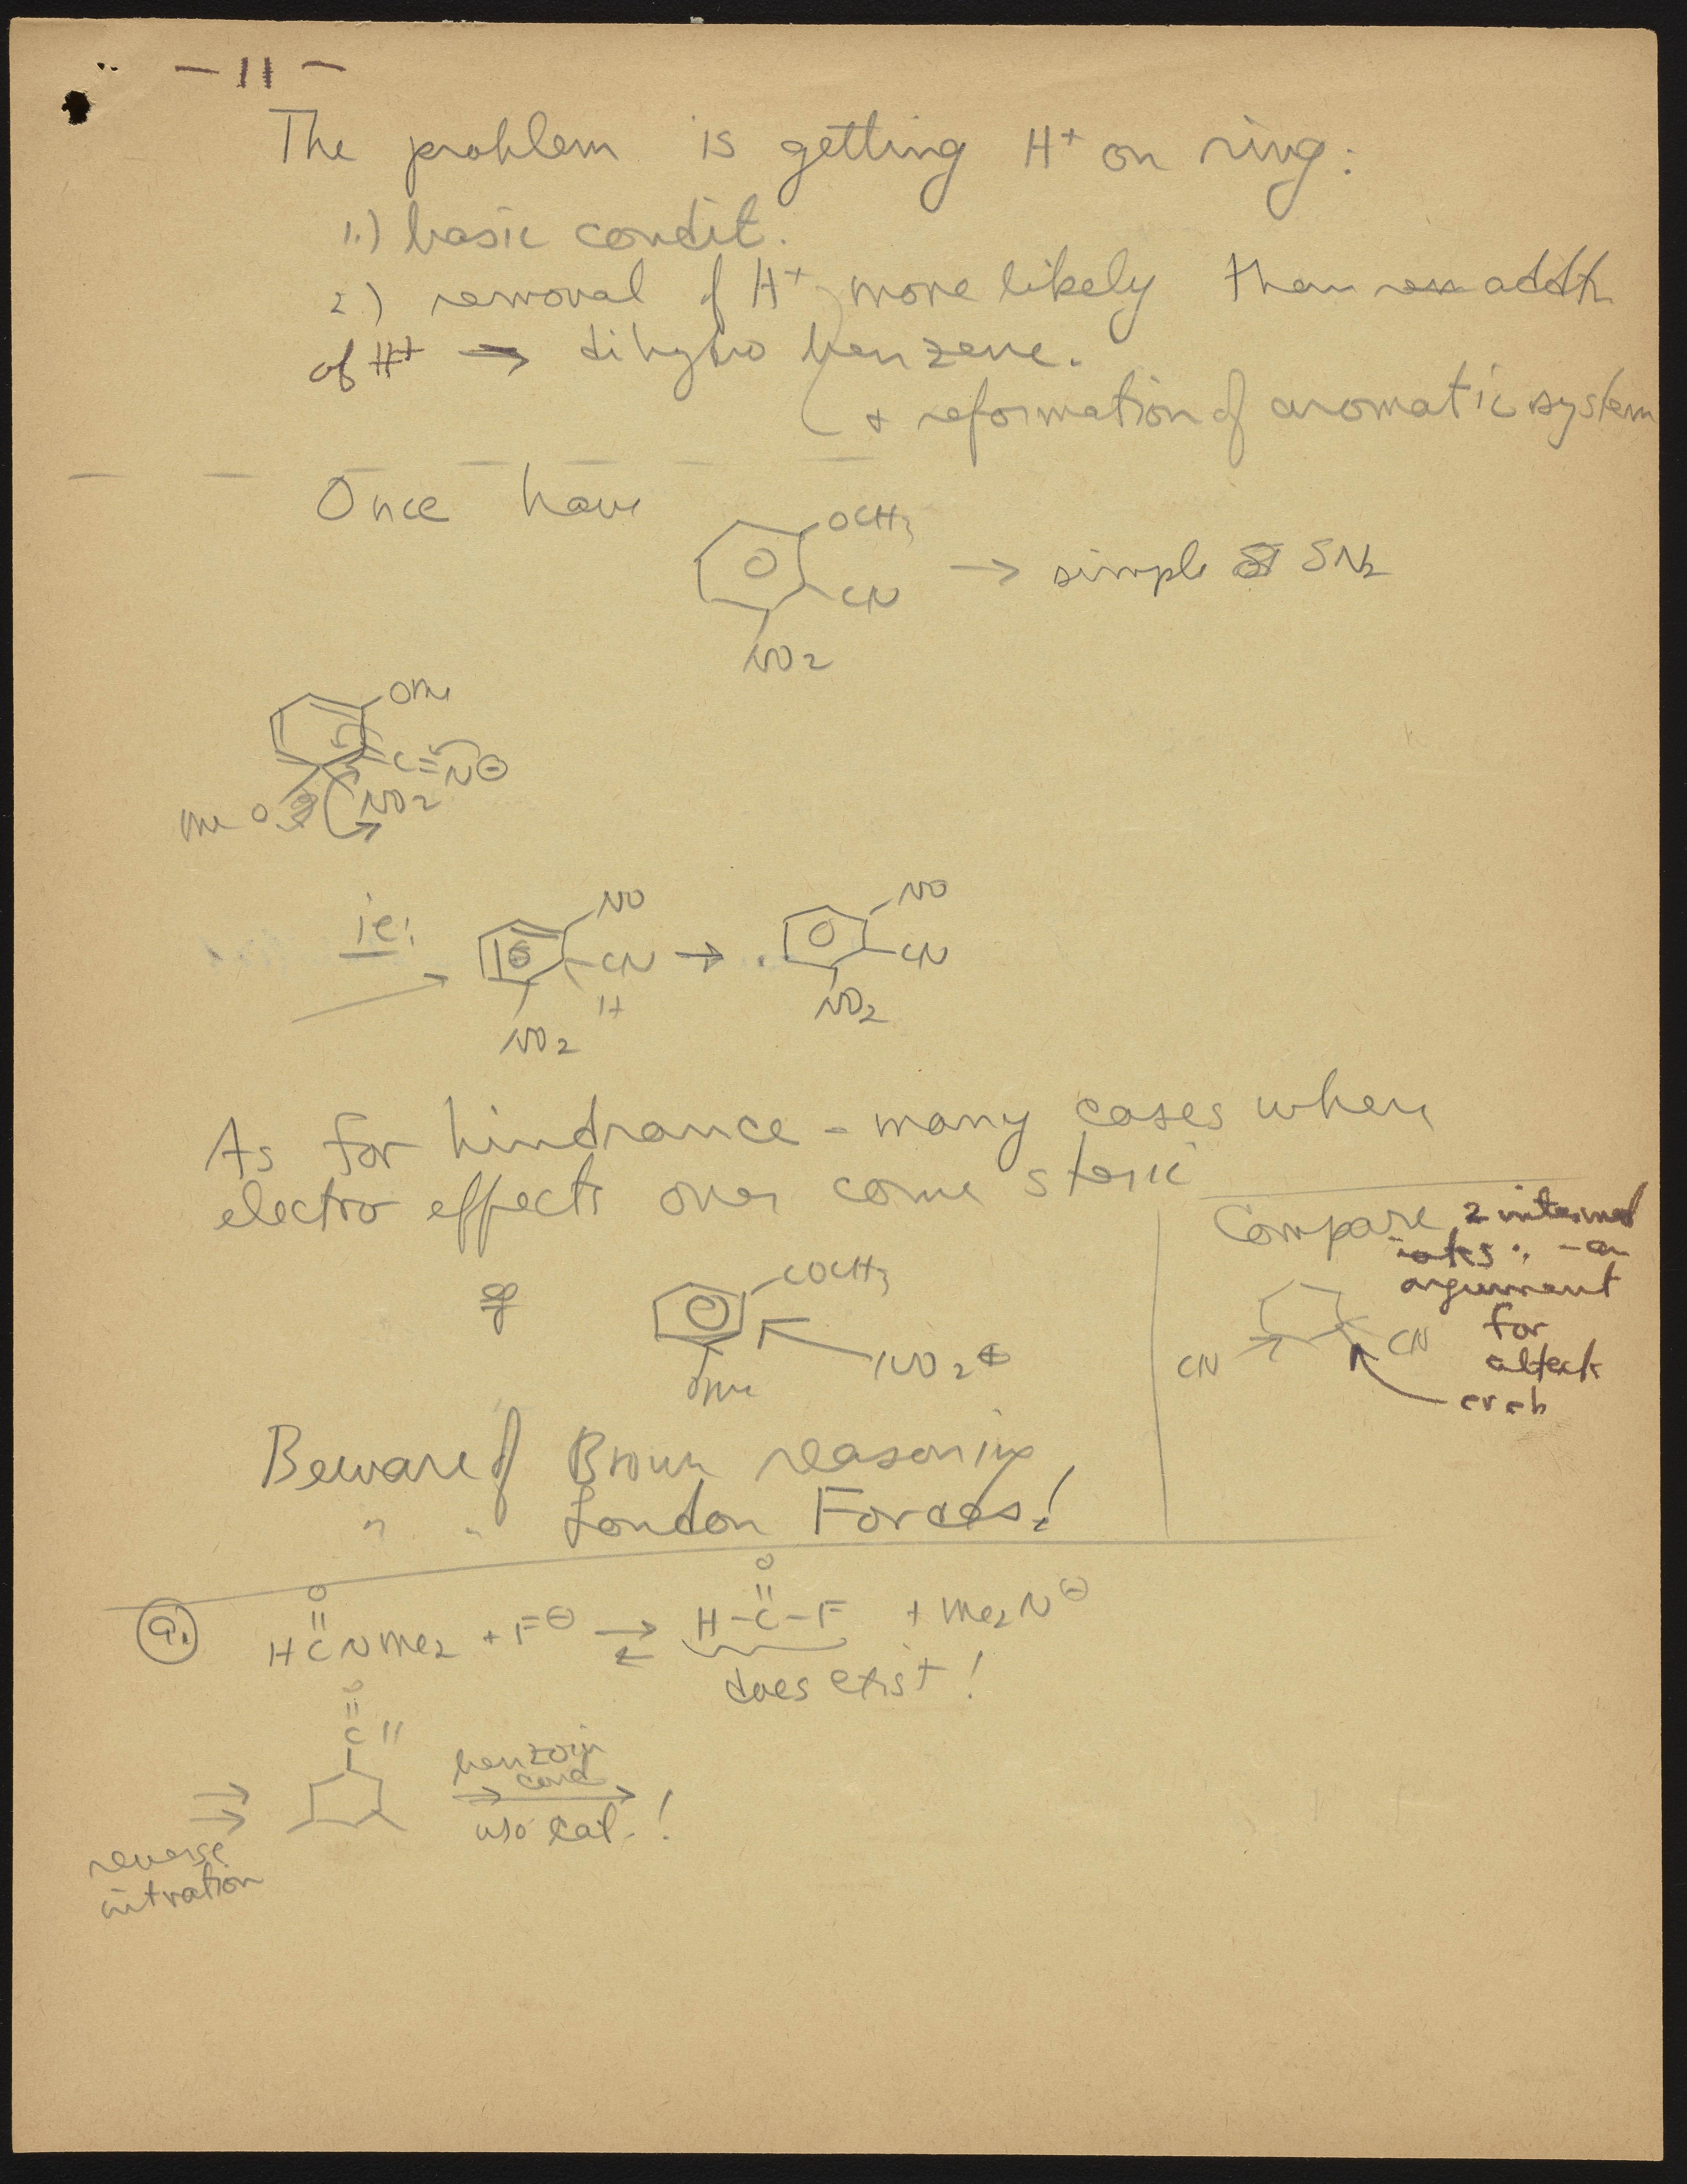 - 11 -
The problem is getting H+ on ring:
1.) basic condit.
2.) removal of H+ more likely than addtn
of H+ → dihydro benzene.
+ reformation of aromatic system
Once have
OCH3
CN
NO2
→ simple SN2
OMe
C≡N⊖
MeO
NO2
ie:
NO
CN
H
NO2
→
NO
CN
NO2
As for hindrance - many cases where
electro effects over come steric
Compare 2 intermed
iates ∴ - an
argument
for
attack
CN
CN
eg
COCH3
OMe
NO2⊕
Beware of Brown reasoning
" " London Forces!
9.
O
HCNMe2 + F⊖ ⇄ H-C-F + Me2N⊖
O
does exist!
O
C
benzoin
cond
w/o cat. !
reverse
nitration